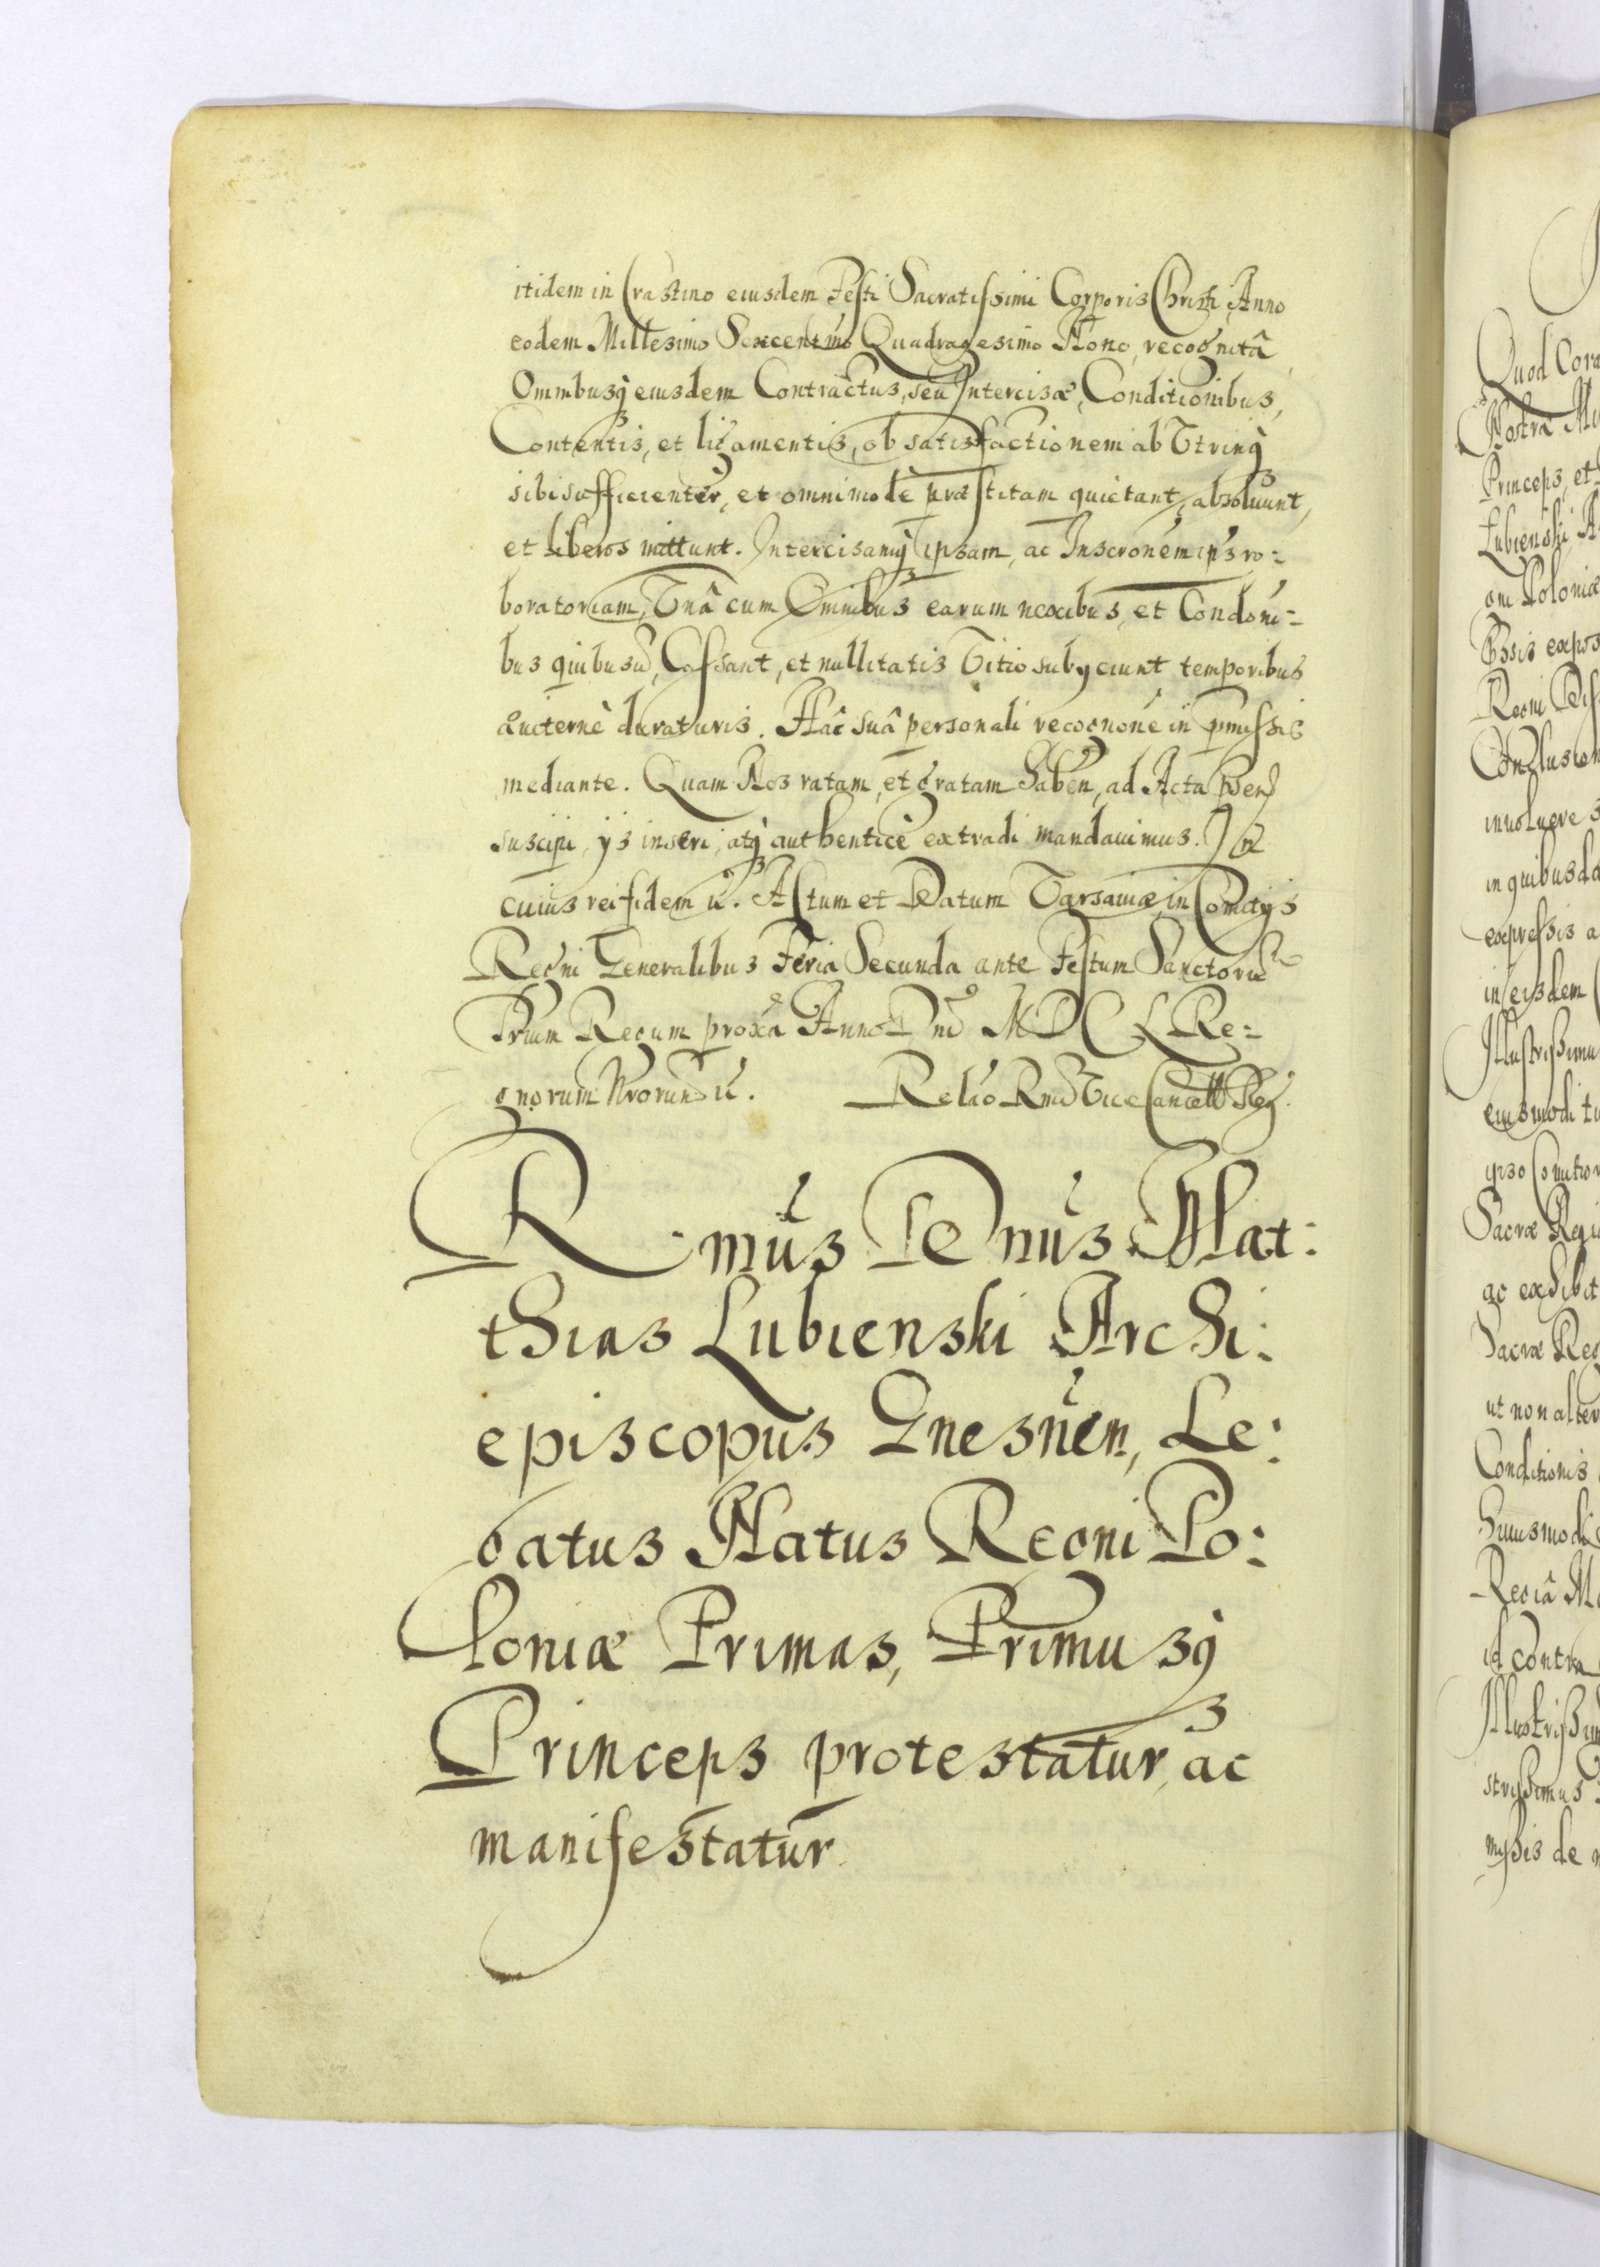 itidem in Crastino eiusdem Festi Sacratissimi Corporis Christi Anno
eodem Millesimo Sexcentmo Quadragesimo Nono, recognitâ
Omnibusq eiusdem Contractus, seu Intercisæ, Conditionibus,
Contentis, et ligamentis, ob satisfactionem ab Utrinq
sibi sufficienter, et omnimode præstitam quietant, absoluunt,
et liberos mittunt. Intercisamq ipsam, ac Inscronem ips ro=
boratoriam, Unâ cum Omnibus earum nexibus, et Condoni=
bus quibusu, Cassant, et nullitatis Vitio subyciunt temporibus
æuiterne duraturis. Hac suâ personali recognone in pmissis
mediante. Quam Nos ratam, et gratam haben, ad Acta pnen
suscipi, ys inseri, atq authenticè extradi mandauimus. In
cuius rei fidem u. Actum et Datum Varsauiæ, in Comitys
Regni Generalibus Feria Secunda ante Festum Sanctoru
Trium Regum proxa Anno Dni MDCL Re=
gnorum Nrorum u. Relao Rmi Vice Cancell Reg.
Rmus Dnus Mat:
thias Lubienski Archi:
episcopus Gnesnen, Le:
gatus Natus Regni Po:
loniæ Primas, Primusq
Princeps protestatur, ac
manifestatur
Quod Cora
Nostra
Princeps, et
Lubienski, A
Poloniæ
Regni
Conclusion
inuoluere s
in quibusda
expressis a
in eisdem
Illustrissimu
eiusmodi tu
Sacræ Regi
ac exhibit
Sacræ Reg
ut non alter
Conditionis
huiusmodi
Regiâ Ma
id contra
Illustrissim
strissimus
missis de